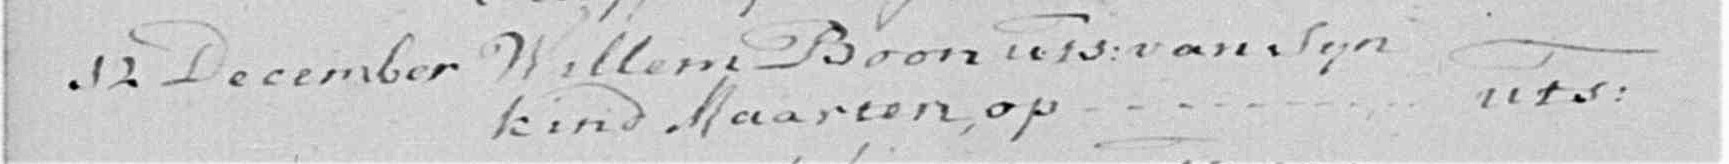 12 December Willem Boon uts: van Syn
kind Maarten, op - - - - - - - - - - uts: